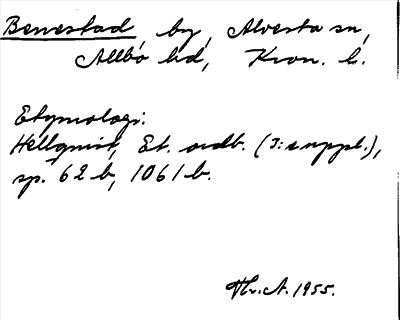 Benestad, by, Alvesta sn,
Allbo hd, Kron. l.
Etymologi.
Hellquist, Et. ordb. (I: suppl.),
sp. 62 b, 1061 b.
Th. A. 1955.